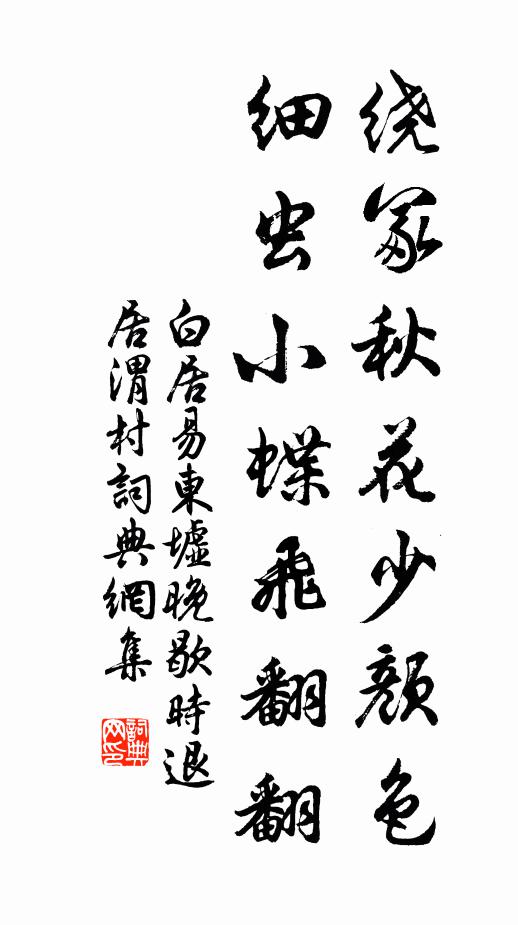 绕冢秋花少颜色
细虫小蝶飞翻翻
白居易東墟晚歇時退
居渭村詞典網集
詞典
网印